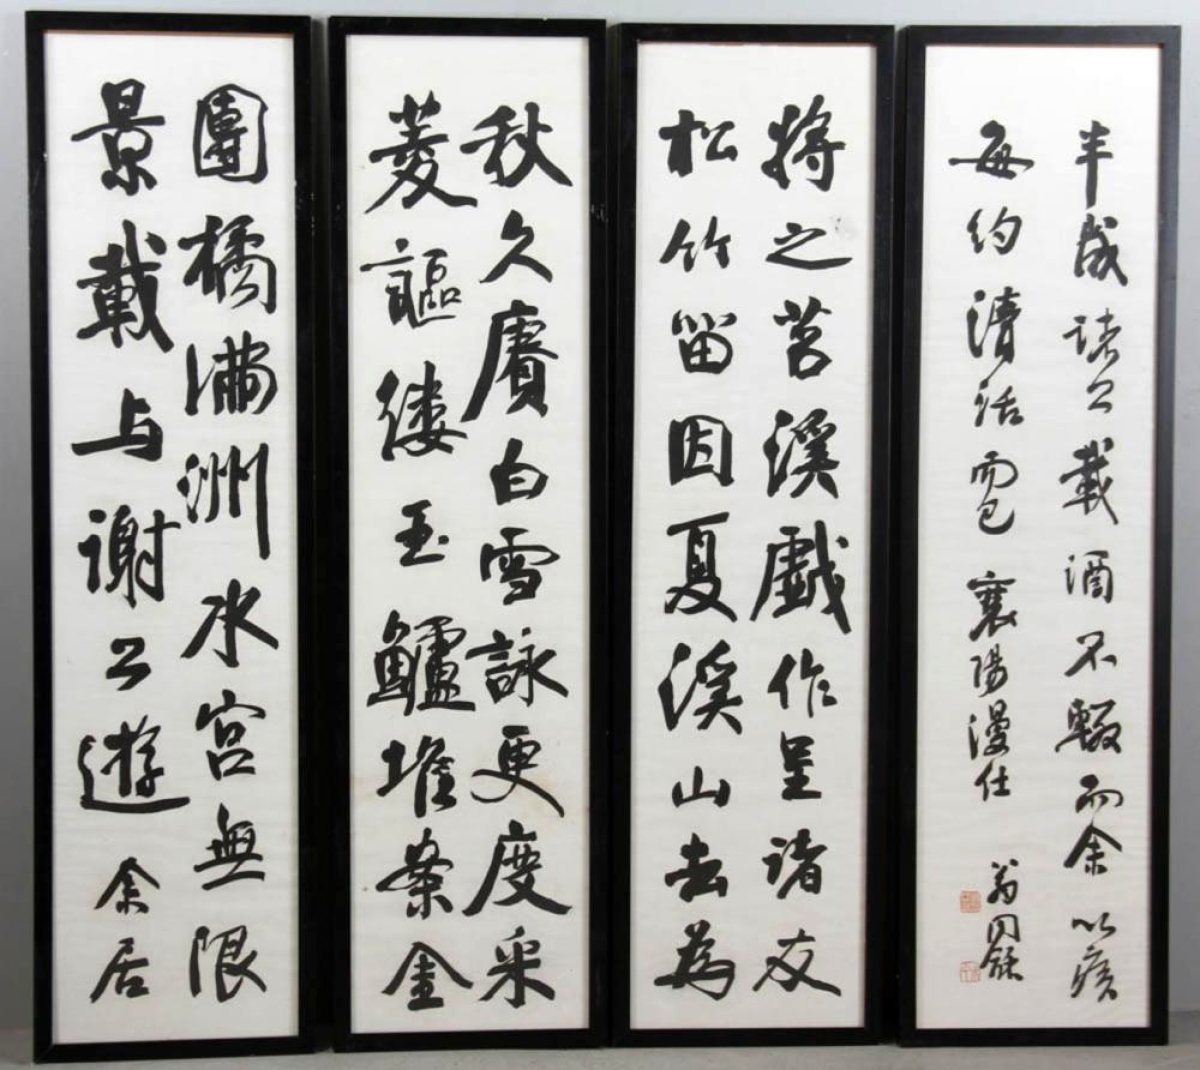 將之苕溪戲作呈諸友
松竹留因夏溪山去為
秋久賡白雪詠更度采
菱謳縷玉鱸堆案金
團橘滿洲水宮無限
景載与謝公遊余居
半歲諸公載酒不輟而余以疾
每約清話而已襄陽漫仕
翁同龢